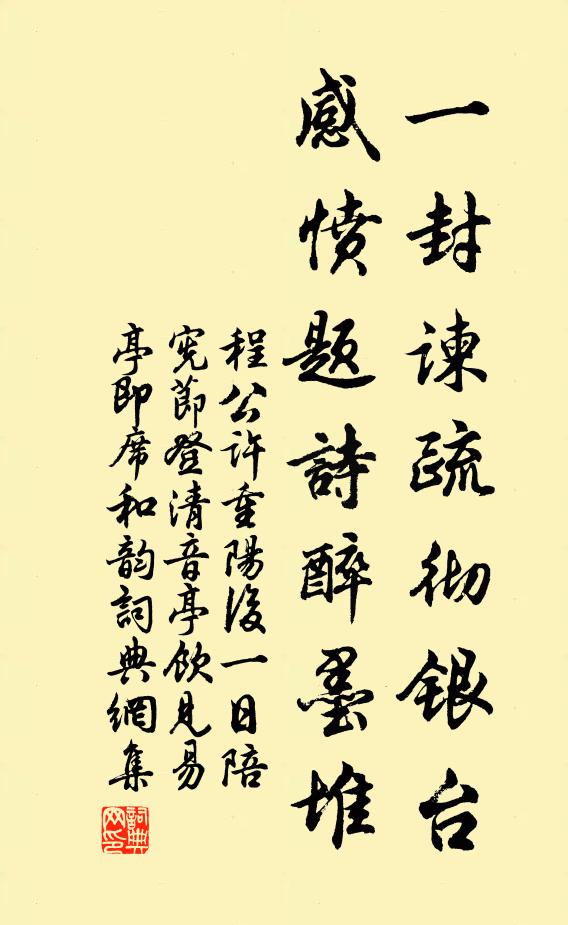 一封谏疏彻银台
感愤题詩醉墨堆
程公许重陽後一日陪
宪節登清音亭飲見易
亭即席和韵詞典網集
詞典
网印